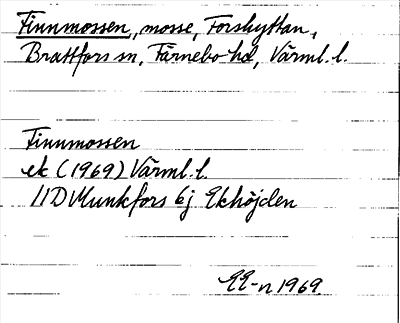 Finnmossen, mosse, Forshyttan,
Brattfors sn, Färnebo hd, Värml. l.
Finnmossen
ek (1969) Värml. l.
11D Munkfors 6j Ekhöjden
EE-n 1969